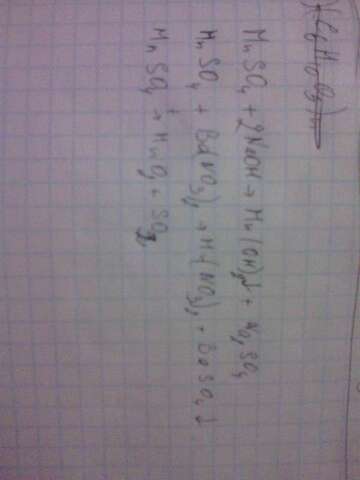 (C6H10O5)n
MnSO4 + 2NaOH → Mn(OH)2↓ + Na2SO4
MnSO4 + Ba(NO3)2 → Mn(NO3)2 + BaSO4↓
MnSO4 → MnO2 + SO2